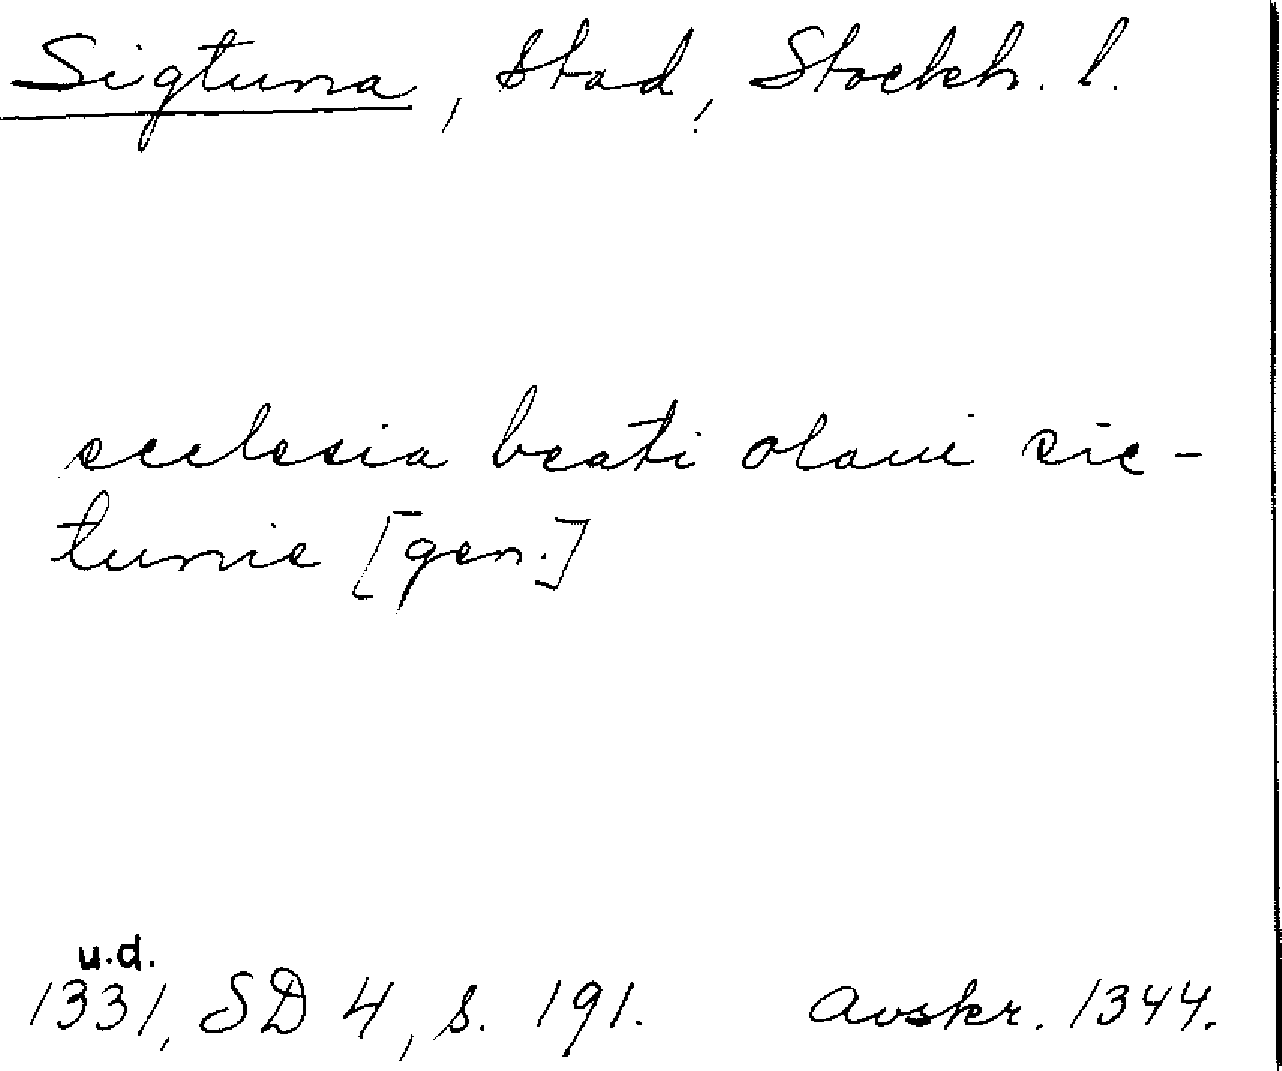 Sigtuna, stad, Stockh. l.
ecclesia beati olaui sic-
tunie [gen.]
u.d.
1331, SD 4, s. 191. Avskr. 1344.